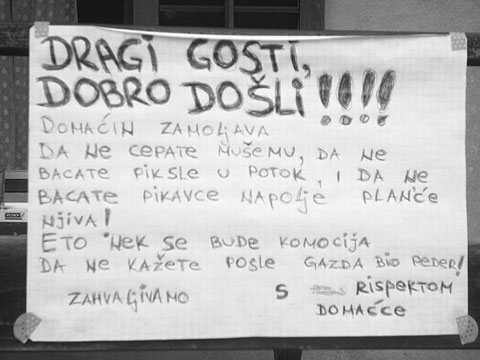 DRAGI GOSTI,
DOBRO DOŠLI!!!!
DOMAĆIN ZAMOLJAVA
DA NE CEPATE MUŠEMU, DA NE
BACATE PIKSLE U POTOK, I DA NE
BACATE PIKAVCE NAPOLJE PLAN'ĆE
NJIVA!
ETO NEK SE BUDE KOMOCIJA
DA NE KAŽETE POSLE GAZDA BIO PEDER!
ZAHVALJIVAMO S RISPEKTOM
DOMAĆCE